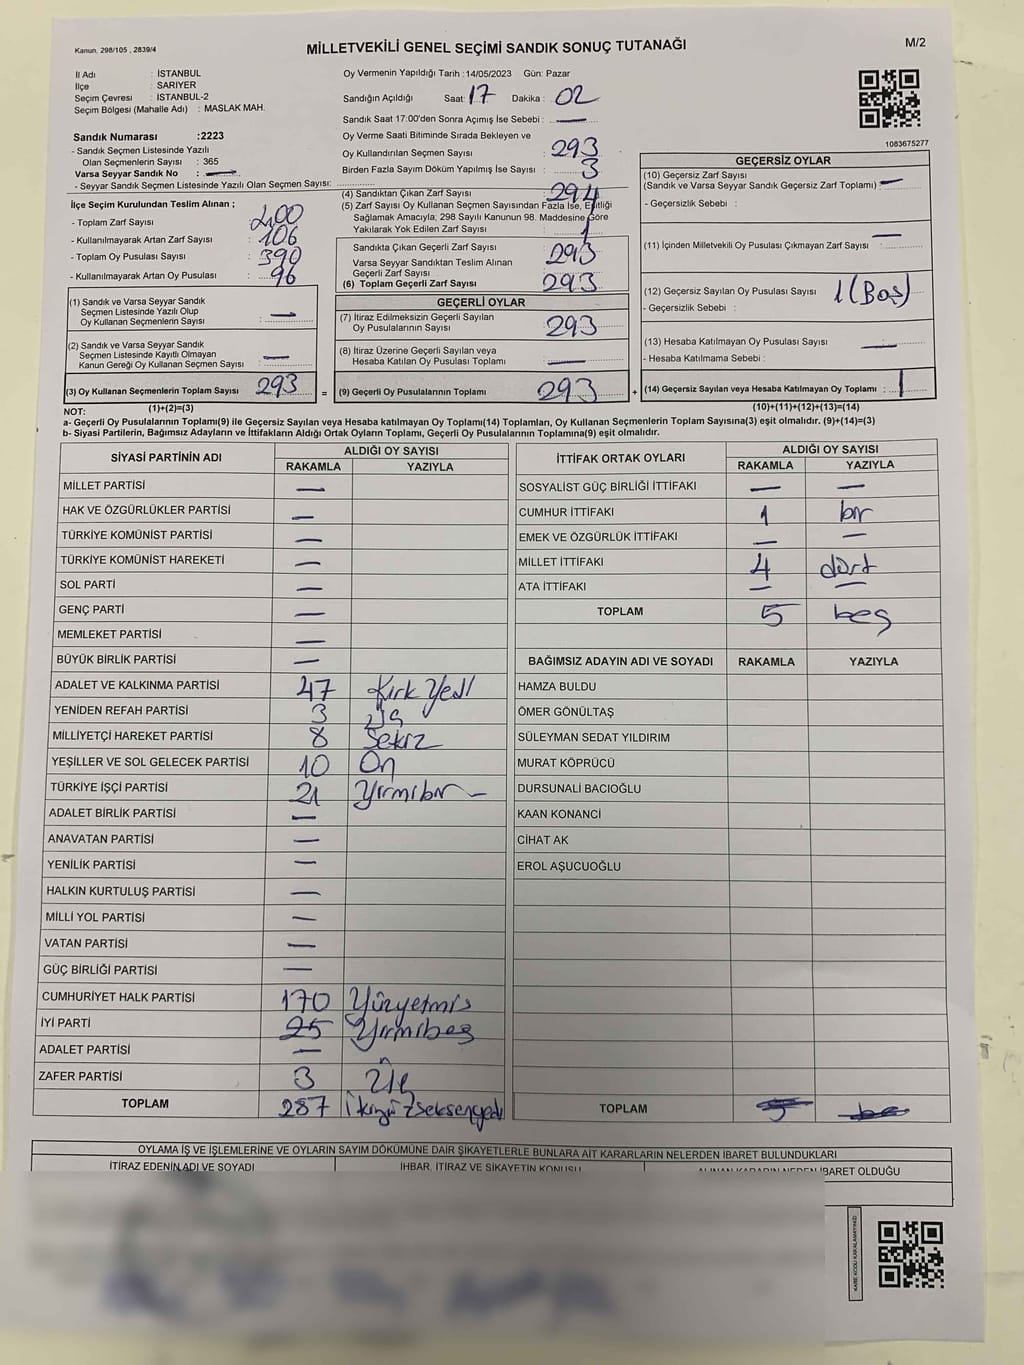 Kanun, 298/105 , 2839/4
MİLLETVEKİLİ GENEL SEÇİMİ SANDIK SONUÇ TUTANAĞI
M/2
İl Adı : İSTANBUL
İlçe : SARIYER
Seçim Çevresi : İSTANBUL-2
Seçim Bölgesi (Mahalle Adı) : MASLAK MAH.
Sandık Numarası :2223
- Sandık Seçmen Listesinde Yazılı
Olan Seçmenlerin Sayısı : 365
Varsa Seyyar Sandık No : —
- Seyyar Sandık Seçmen Listesinde Yazılı Olan Seçmen Sayısı:
İlçe Seçim Kurulundan Teslim Alınan ;
- Toplam Zarf Sayısı : 400
- Kullanılmayarak Artan Zarf Sayısı : 106
- Toplam Oy Pusulası Sayısı : 390
- Kullanılmayarak Artan Oy Pusulası : 96
(1) Sandık ve Varsa Seyyar Sandık
Seçmen Listesinde Yazılı Olup
Oy Kullanan Seçmenlerin Sayısı : —
(2) Sandık ve Varsa Seyyar Sandık
Seçmen Listesinde Kayıtlı Olmayan
Kanun Gereği Oy Kullanan Seçmen Sayısı : —
(3) Oy Kullanan Seçmenlerin Toplam Sayısı 293
Oy Vermenin Yapıldığı Tarih :14/05/2023 Gün: Pazar
Sandığın Açıldığı Saat: 17 Dakika : 02
Sandık Saat 17:00'den Sonra Açımış İse Sebebi : —
Oy Verme Saati Bitiminde Sırada Bekleyen ve
Oy Kullandırılan Seçmen Sayısı : 293
Birden Fazla Sayım Döküm Yapılmış İse Sayısı : 3
(4) Sandıktan Çıkan Zarf Sayısı : 294
(5) Zarf Sayısı Oy Kullanan Seçmen Sayısından Fazla İse, Eşitliği
Sağlamak Amacıyla; 298 Sayılı Kanunun 98. Maddesine Göre
Yakılarak Yok Edilen Zarf Sayısı : 1
Sandıkta Çıkan Geçerli Zarf Sayısı 293
Varsa Seyyar Sandıktan Teslim Alınan
Geçerli Zarf Sayısı 293
(6) Toplam Geçerli Zarf Sayısı : 293
GEÇERLİ OYLAR
(7) İtiraz Edilmeksizin Geçerli Sayılan
Oy Pusulalarının Sayısı : 293
(8) İtiraz Üzerine Geçerli Sayılan veya
Hesaba Katılan Oy Pusulası Toplamı : —
= (9) Geçerli Oy Pusulalarının Toplamı 293 +
1083675277
GEÇERSİZ OYLAR
(10) Geçersiz Zarf Sayısı
(Sandık ve Varsa Seyyar Sandık Geçersiz Zarf Toplamı) : —
- Geçersizlik Sebebi :
(11) İçinden Milletvekili Oy Pusulası Çıkmayan Zarf Sayısı : —
(12) Geçersiz Sayılan Oy Pusulası Sayısı : 1 (Boş)
- Geçersizlik Sebebi :
(13) Hesaba Katılmayan Oy Pusulası Sayısı : —
- Hesaba Katılmama Sebebi :
(14) Geçersiz Sayılan veya Hesaba Katılmayan Oy Toplamı : 1
NOT: (1)+(2)=(3) (10)+(11)+(12)+(13)=(14)
a- Geçerli Oy Pusulalarının Toplamı(9) ile Geçersiz Sayılan veya Hesaba katılmayan Oy Toplamı(14) Toplamları, Oy Kullanan Seçmenlerin Toplam Sayısına(3) eşit olmalıdır. (9)+(14)=(3)
b- Siyasi Partilerin, Bağımsız Adayların ve İttifakların Aldığı Ortak Oyların Toplamı, Geçerli Oy Pusulalarının Toplamına(9) eşit olmalıdır.
SİYASİ PARTİNİN ADI ALDIĞI OY SAYISI
RAKAMLA YAZIYLA
MİLLET PARTİSİ —
HAK VE ÖZGÜRLÜKLER PARTİSİ —
TÜRKİYE KOMÜNİST PARTİSİ —
TÜRKİYE KOMÜNİST HAREKETİ —
SOL PARTİ —
GENÇ PARTİ —
MEMLEKET PARTİSİ —
BÜYÜK BİRLİK PARTİSİ —
ADALET VE KALKINMA PARTİSİ 47 Kırk Yedi
YENİDEN REFAH PARTİSİ 3 Üç
MİLLİYETÇİ HAREKET PARTİSİ 8 Sekiz
YEŞİLLER VE SOL GELECEK PARTİSİ 10 On
TÜRKİYE İŞÇİ PARTİSİ 21 Yirmibir —
ADALET BİRLİK PARTİSİ —
ANAVATAN PARTİSİ —
YENİLİK PARTİSİ —
HALKIN KURTULUŞ PARTİSİ —
MİLLİ YOL PARTİSİ —
VATAN PARTİSİ —
GÜÇ BİRLİĞİ PARTİSİ —
CUMHURİYET HALK PARTİSİ 170 Yüzyetmiş
İYİ PARTİ 25 Yirmibeş
ADALET PARTİSİ —
ZAFER PARTİSİ 3 Üç
TOPLAM 287 ikiyüzseksenyedi
İTTİFAK ORTAK OYLARI ALDIĞI OY SAYISI
RAKAMLA YAZIYLA
SOSYALİST GÜÇ BİRLİĞİ İTTİFAKI — —
CUMHUR İTTİFAKI 1 bir
EMEK VE ÖZGÜRLÜK İTTİFAKI — —
MİLLET İTTİFAKI 4 dört
ATA İTTİFAKI — —
TOPLAM 5 beş
BAĞIMSIZ ADAYIN ADI VE SOYADI RAKAMLA YAZIYLA
HAMZA BULDU
ÖMER GÖNÜLTAŞ
SÜLEYMAN SEDAT YILDIRIM
MURAT KÖPRÜCÜ
DURSUNALİ BACIOĞLU
KAAN KONANCİ
CİHAT AK
EROL AŞUCUOĞLU
TOPLAM
OYLAMA İŞ VE İŞLEMLERİNE VE OYLARIN SAYIM DÖKÜMÜNE DAİR ŞİKAYETLERLE BUNLARA AİT KARARLARIN NELERDEN İBARET BULUNDUKLARI
İTİRAZ EDENİN ADI VE SOYADI İHBAR, İTİRAZ VE ŞİKAYETİN KONUSU ALINAN KARARIN NEDEN İBARET OLDUĞU